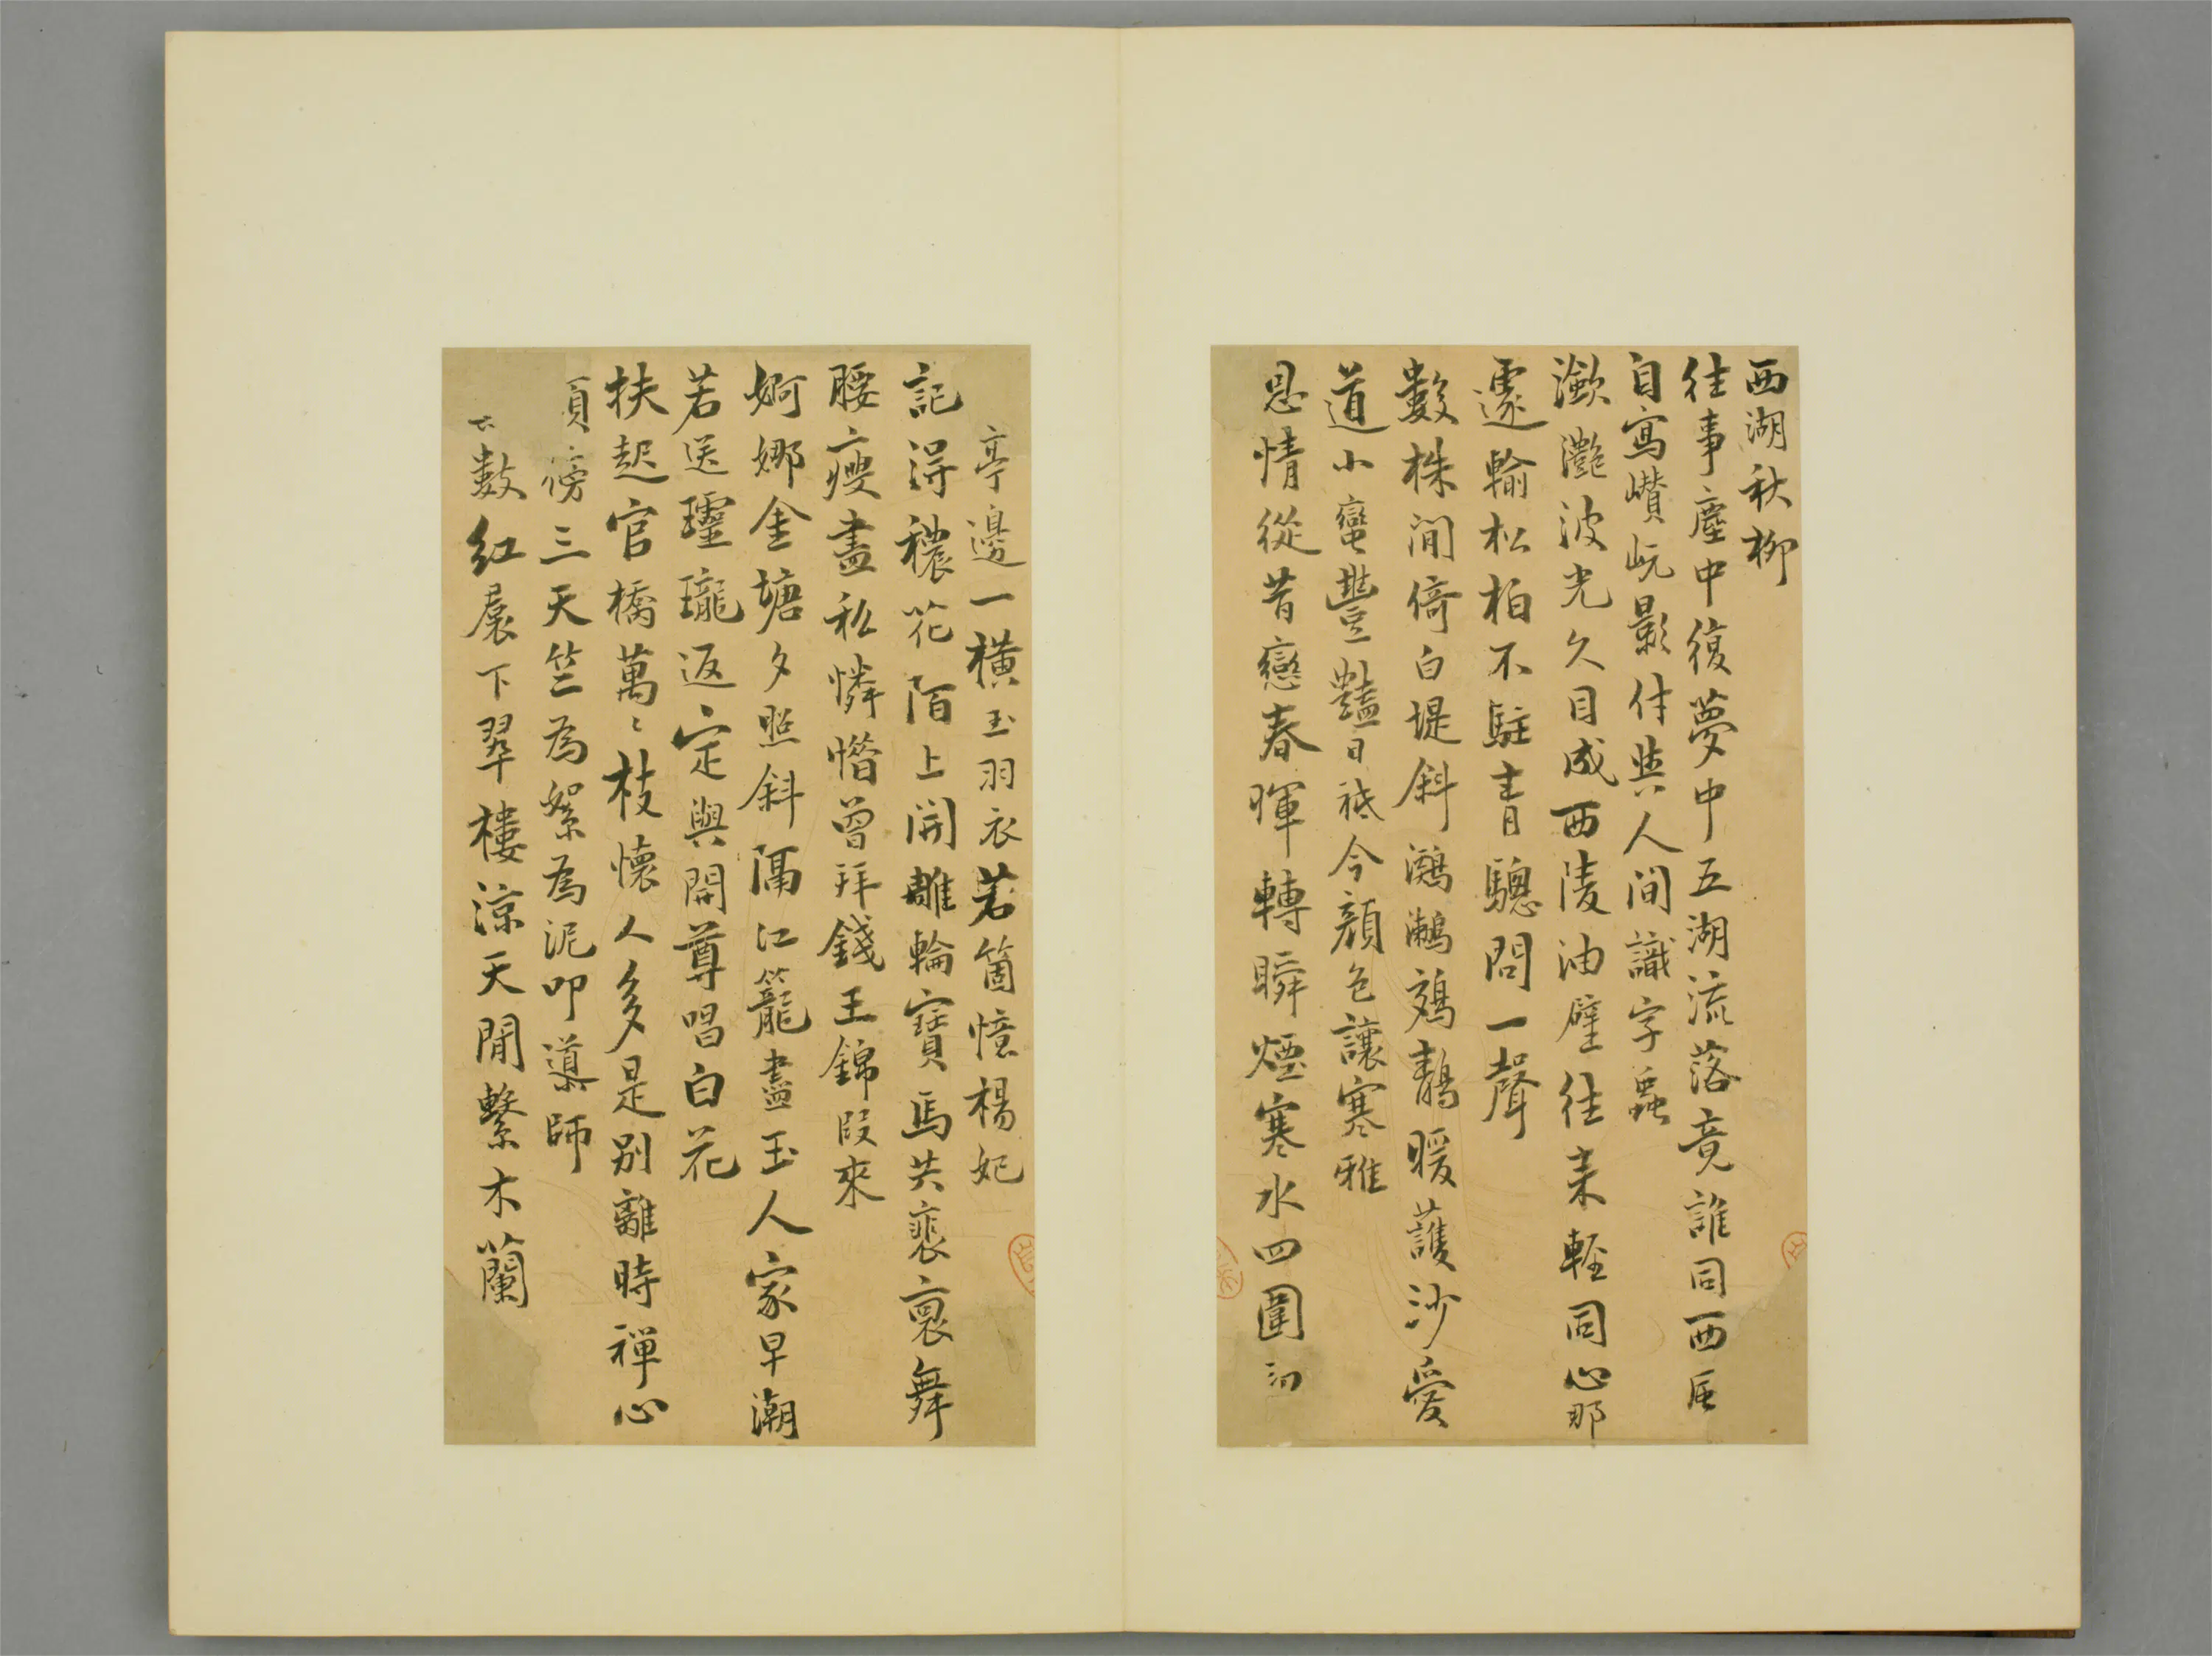 西湖秋柳
往事塵中復夢中五湖流落竟誰同西
自寫巑岏影付與人間識字蟲
瀲灔波光久目成西陵油壁往来輕同心那
邃輸松柏不駐青驄問一聲
數株閒倚白堤斜鸂鶒鵁鶄暖護沙愛
道小蠻豐豔日祗今顏色讓寒雅
恩情從昔戀春暉轉瞬煙寒水四圍
亭邊一橫玉羽衣若箇憶楊妃
記得穠花陌上開雕輪寶馬共裵裛舞
腰瘦盡私憐惜曾拜錢王錦段來
婀娜金塘夕照斜隔江籠盡玉人家早潮
若送瓏返定與開尊唱白花
扶起官橋萬〻枝懷人多是別離時禪心
傍三天竺為絮為泥叩導師
數紅裠下翠樓涼天閒繫木蘭